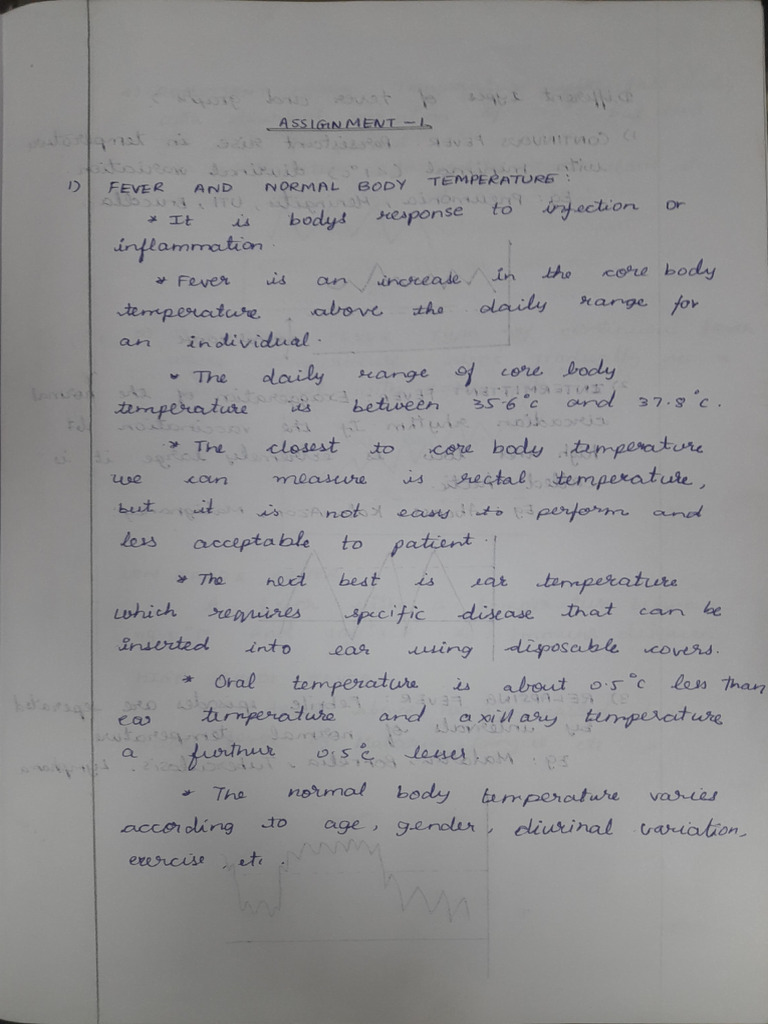 ASSIGNMENT - 1
1) FEVER AND NORMAL BODY TEMPERATURE :
* It is bodys response to infection or
inflammation.
* Fever is an increase in the core body
temperature above the daily range for
an individual.
* The daily range of core body
temperature is between 35.6°c and 37.8°c.
* The closest to core body temperature
we can measure is rectal temperature,
but it is not easy to perform and
less acceptable to patient.
* The next best is ear temperature
which requires specific disease that can be
inserted into ear using disposable covers.
* Oral temperature is about 0.5°c less than
ear temperature and axillary temperature
a furthur 0.5°c lesser
* The normal body temperature varies
according to age, gender, diurinal variation,
exercise, etc.